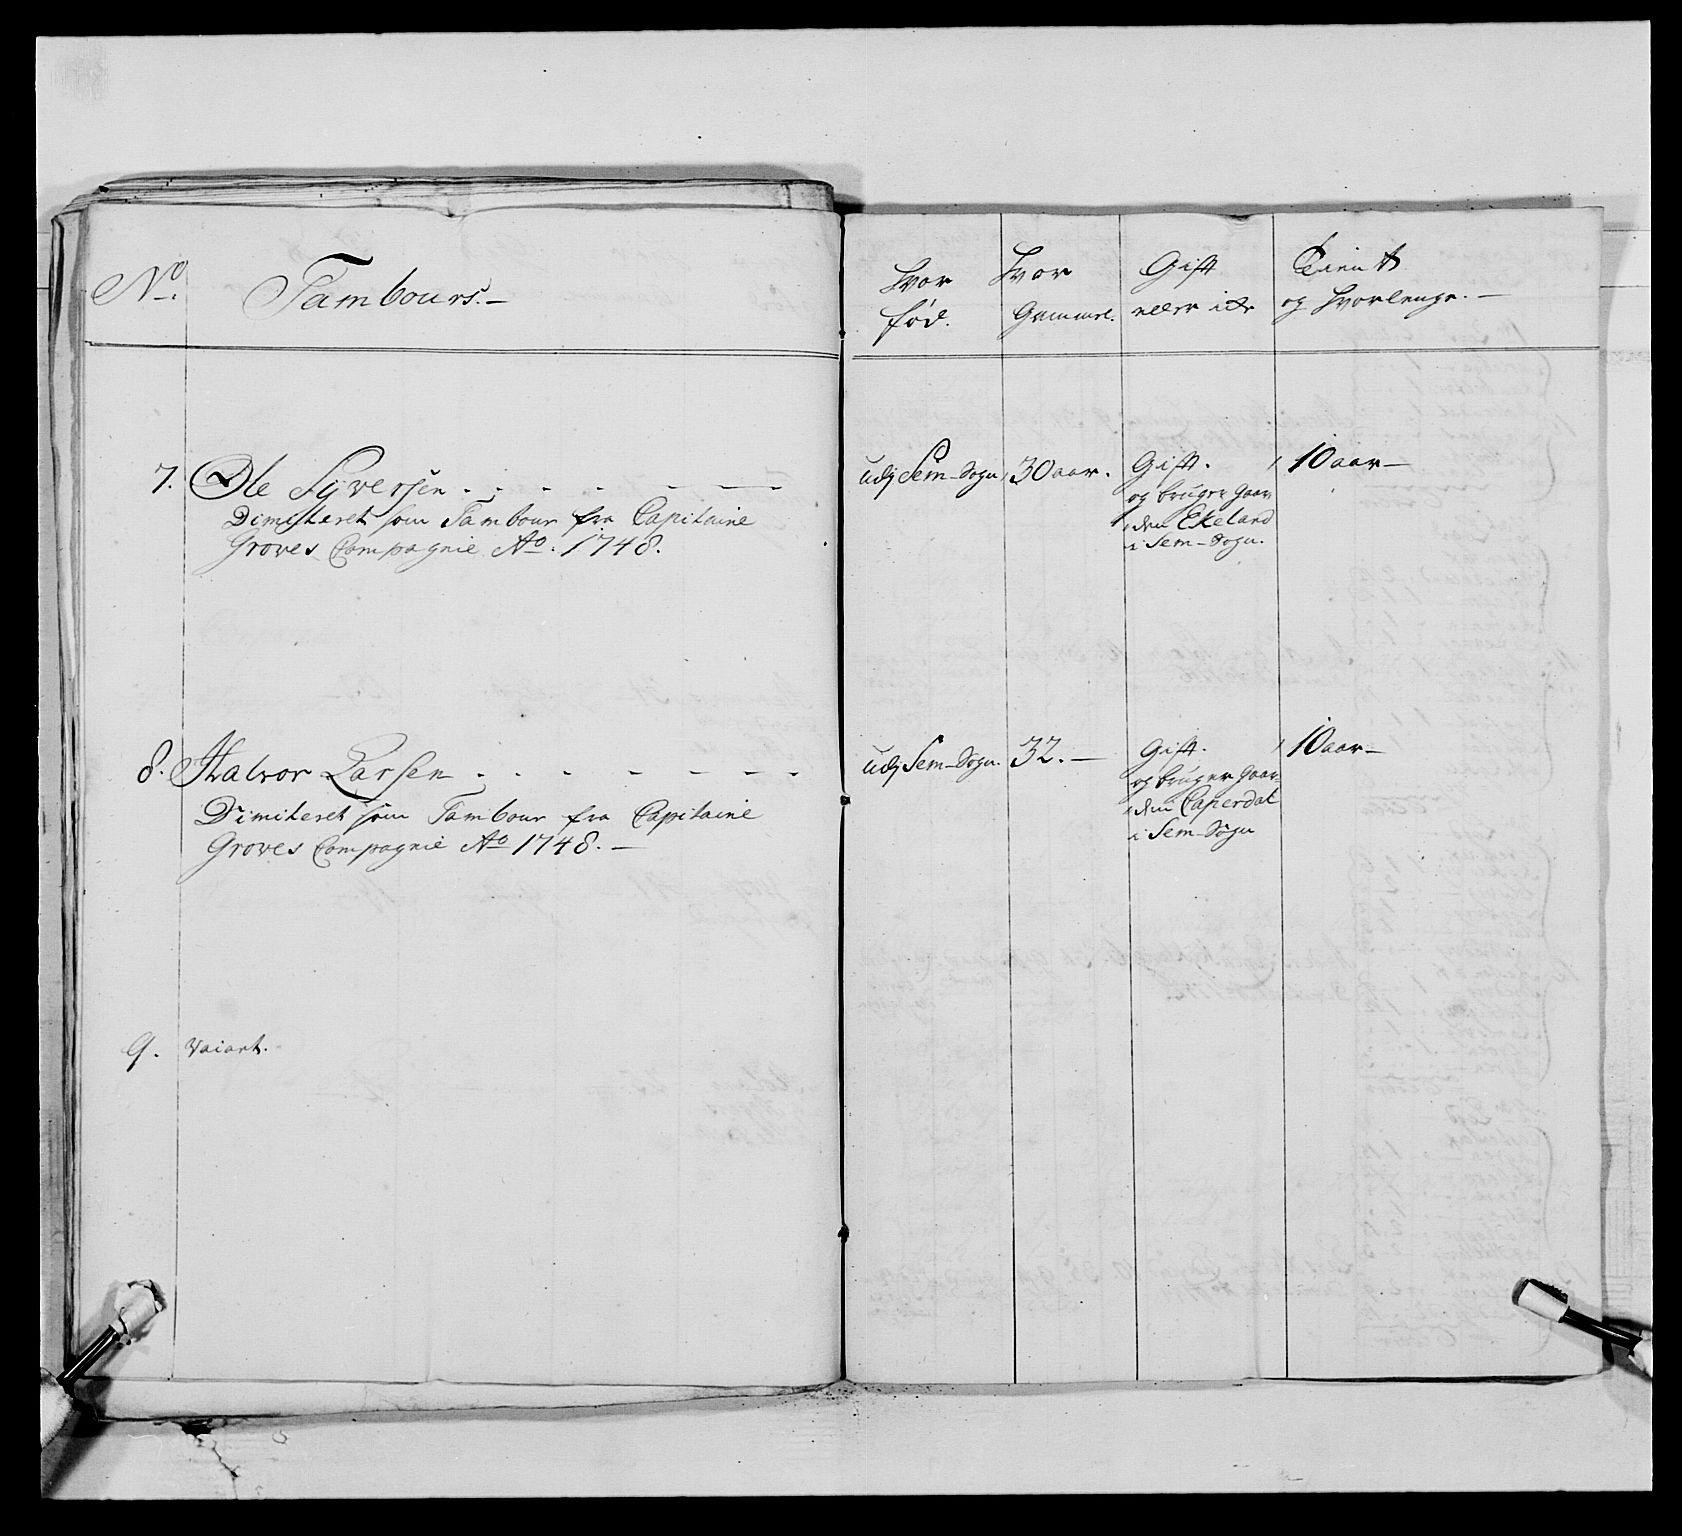 No.
Tambours.—
Hvor
fød.
Hvor
Gammel.
Gift
eller icke
Tient
og hvorlenge.—
7. Ole Syversen
Dimiteret som Tambour fra Capitaine
Groves Compagnie Ao. 1748.
udj Sem-Sogn,
30 aar.
Gift.
og bruger gaar-
den Ekeland
i Sem-Sogn.
10 aar—
8. Halvor Larsen
Dimiteret som Tambour fra Capitaine
Groves Compagnie Ao 1748.—
udj Sem-Sogn.
32.—
Gift.
og bruger gaar-
den Caperdal
i Sem-Sogn
10 aar—
9. Vacant.